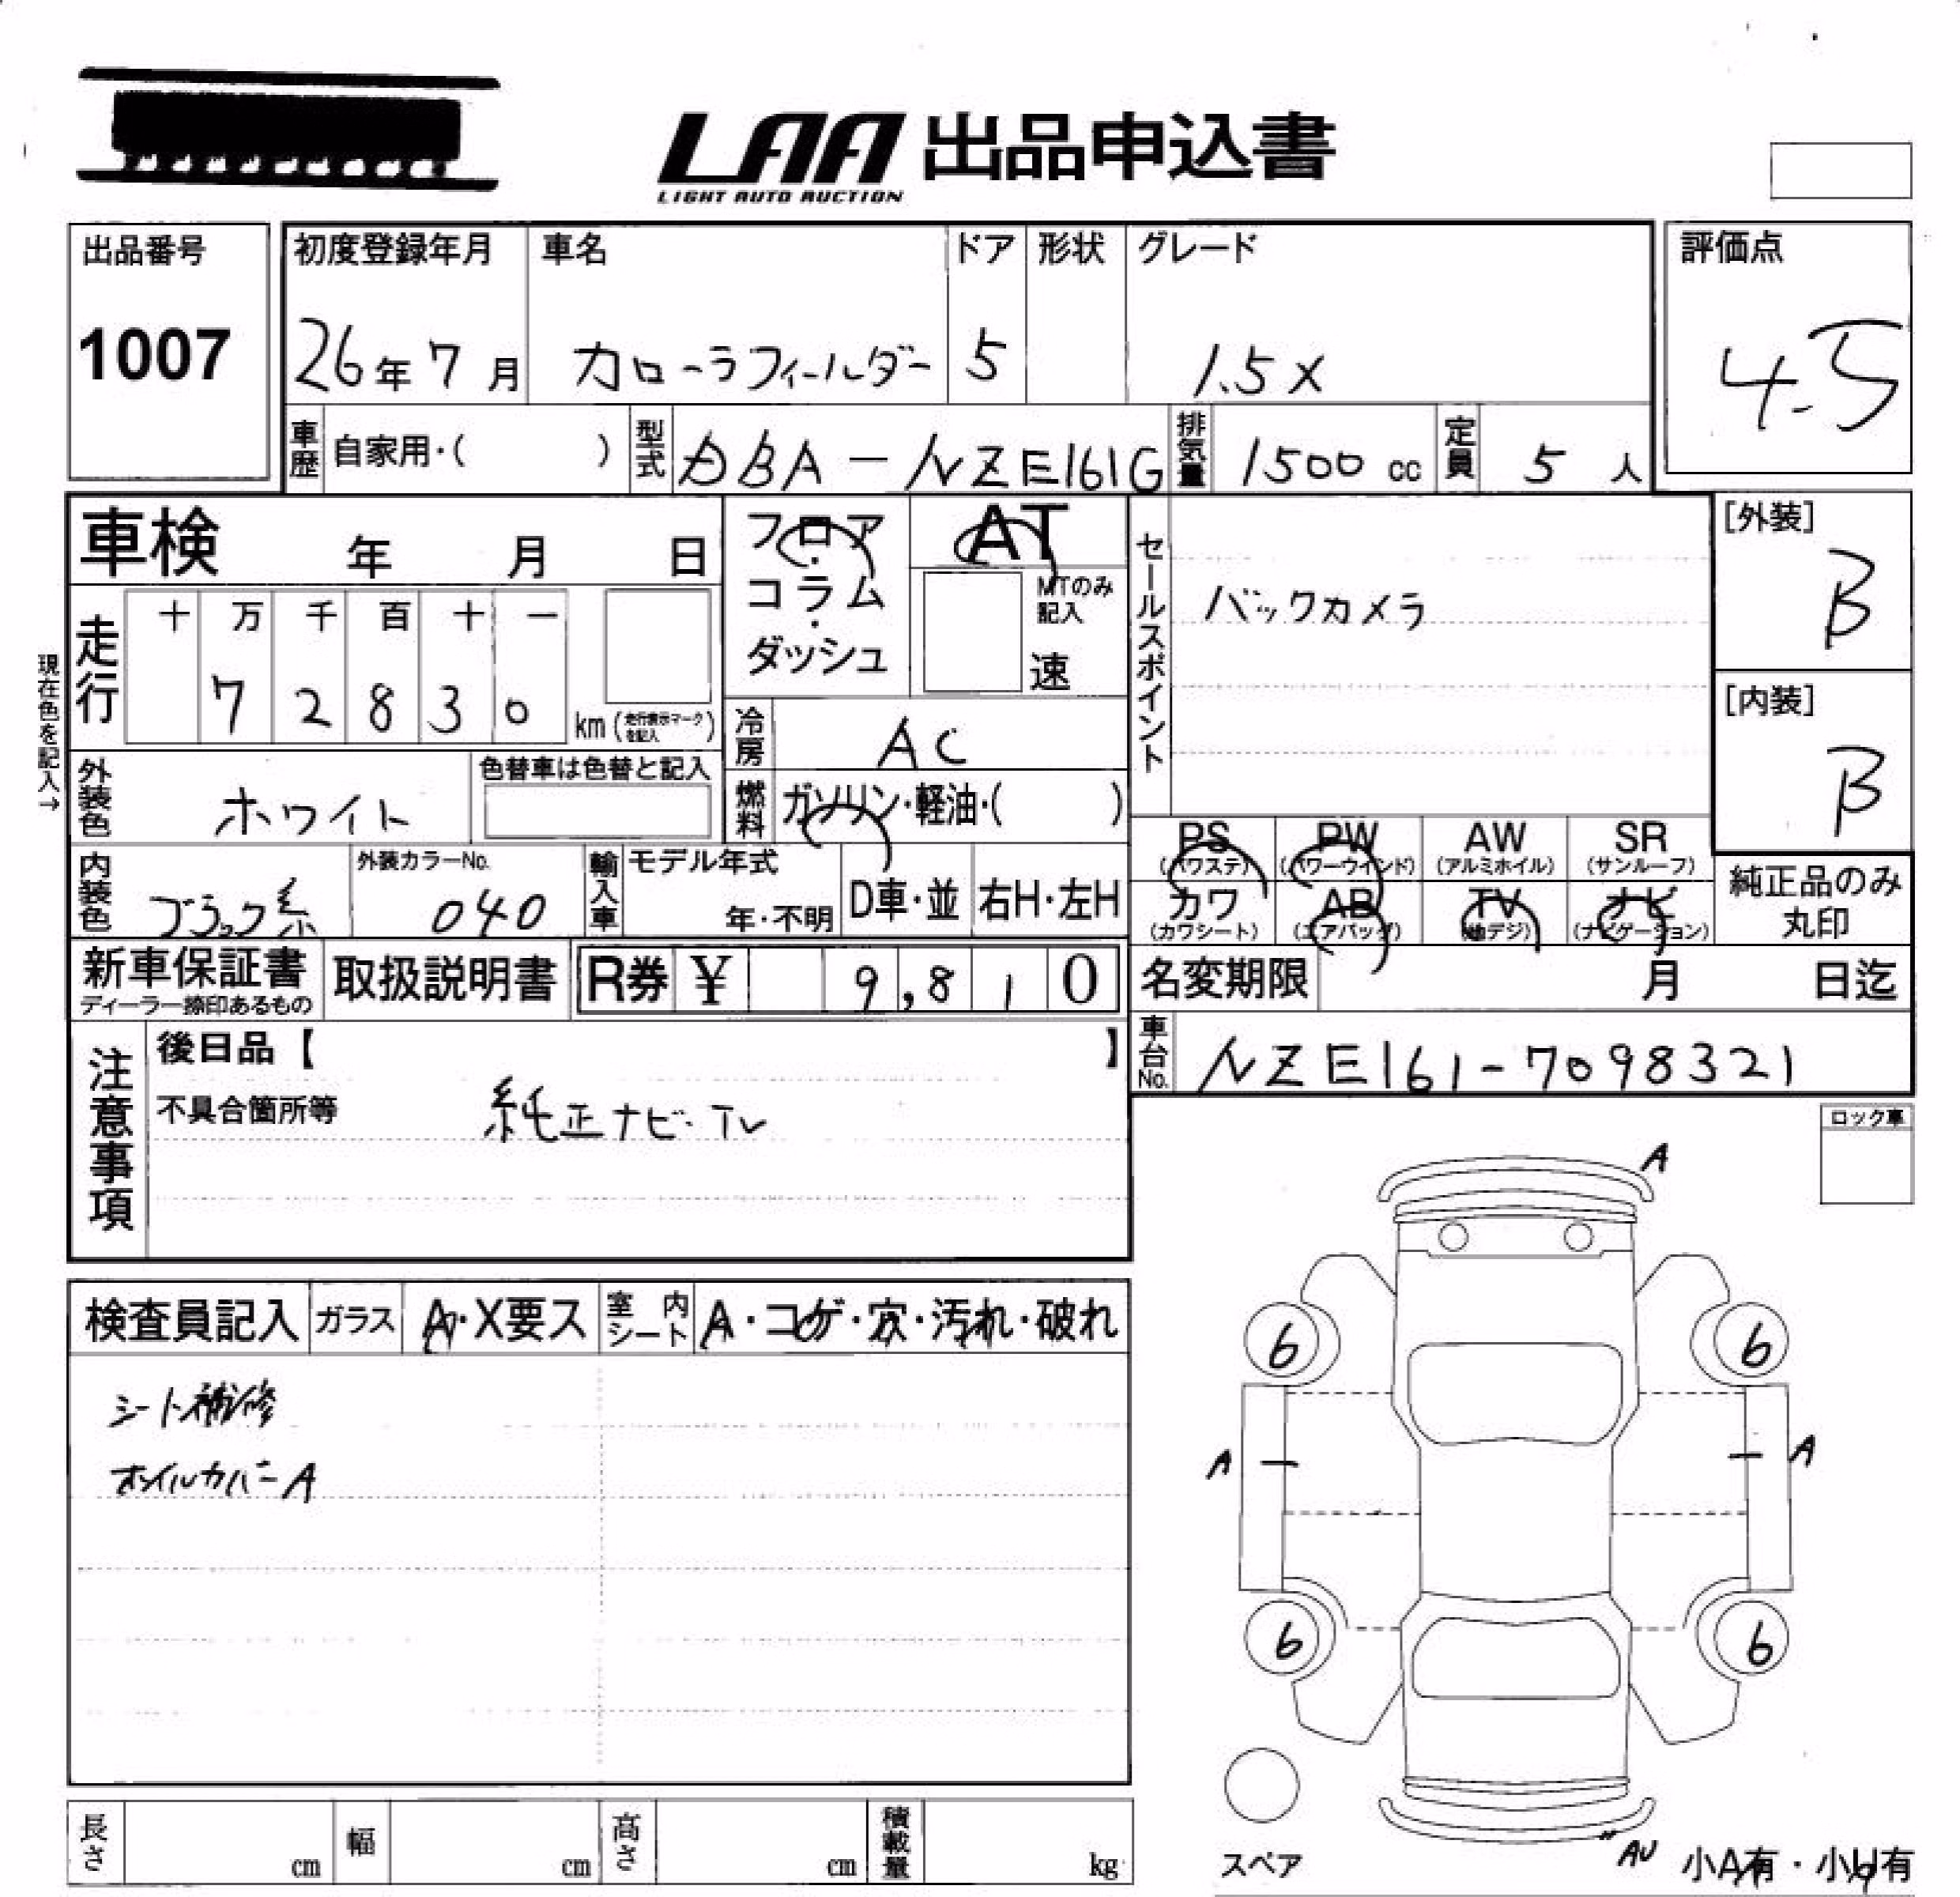 LAA 出品申込書
LIGHT AUTO AUCTION
出品番号
1007
初度登録年月
26年7月
車名
カローラフィールダー
ドア
5
形状
グレード
1.5X
評価点
4.5
車歴 自家用・( )
型式 DBA-NZE161G
排気量 1500 cc
定員 5 人
車検 年 月 日
フロア・コラム・ダッシュ
AT
MTのみ記入
速
セールスポイント
バックカメラ
[外装]
B
[内装]
B
現在色を記入→
走行
十 万 千 百 十 一
7 2 8 3 0
km (走行表示マークを記入)
冷房 AC
燃料 ガソリン・軽油・( )
外装色 ホワイト
色替車は色替と記入
内装色 ブラック系
外装カラーNo.
040
輸入車
モデル年式
年・不明
D車・並
右H・左H
PS (パワステ)
PW (パワーウィンド)
AW (アルミホイル)
SR (サンルーフ)
カワ (カワシート)
AB (エアバッグ)
TV (地デジ)
ナビ (ナビゲーション)
純正品のみ丸印
新車保証書
ディーラー捺印あるもの
取扱説明書
R券 ¥ 9,810
名変期限 月 日迄
車台No. NZE161-7098321
注意事項
後日品【 】
不具合箇所等
純正ナビ・TV
ロック車
検査員記入
ガラス A・X要ス
室内シート A・コゲ・穴・汚れ・破れ
シート補修
ホイルカバーA
A
6 6
A A
6 6
スペア
AU
小A有・小U有
長さ cm
幅 cm
高さ cm
積載量 kg